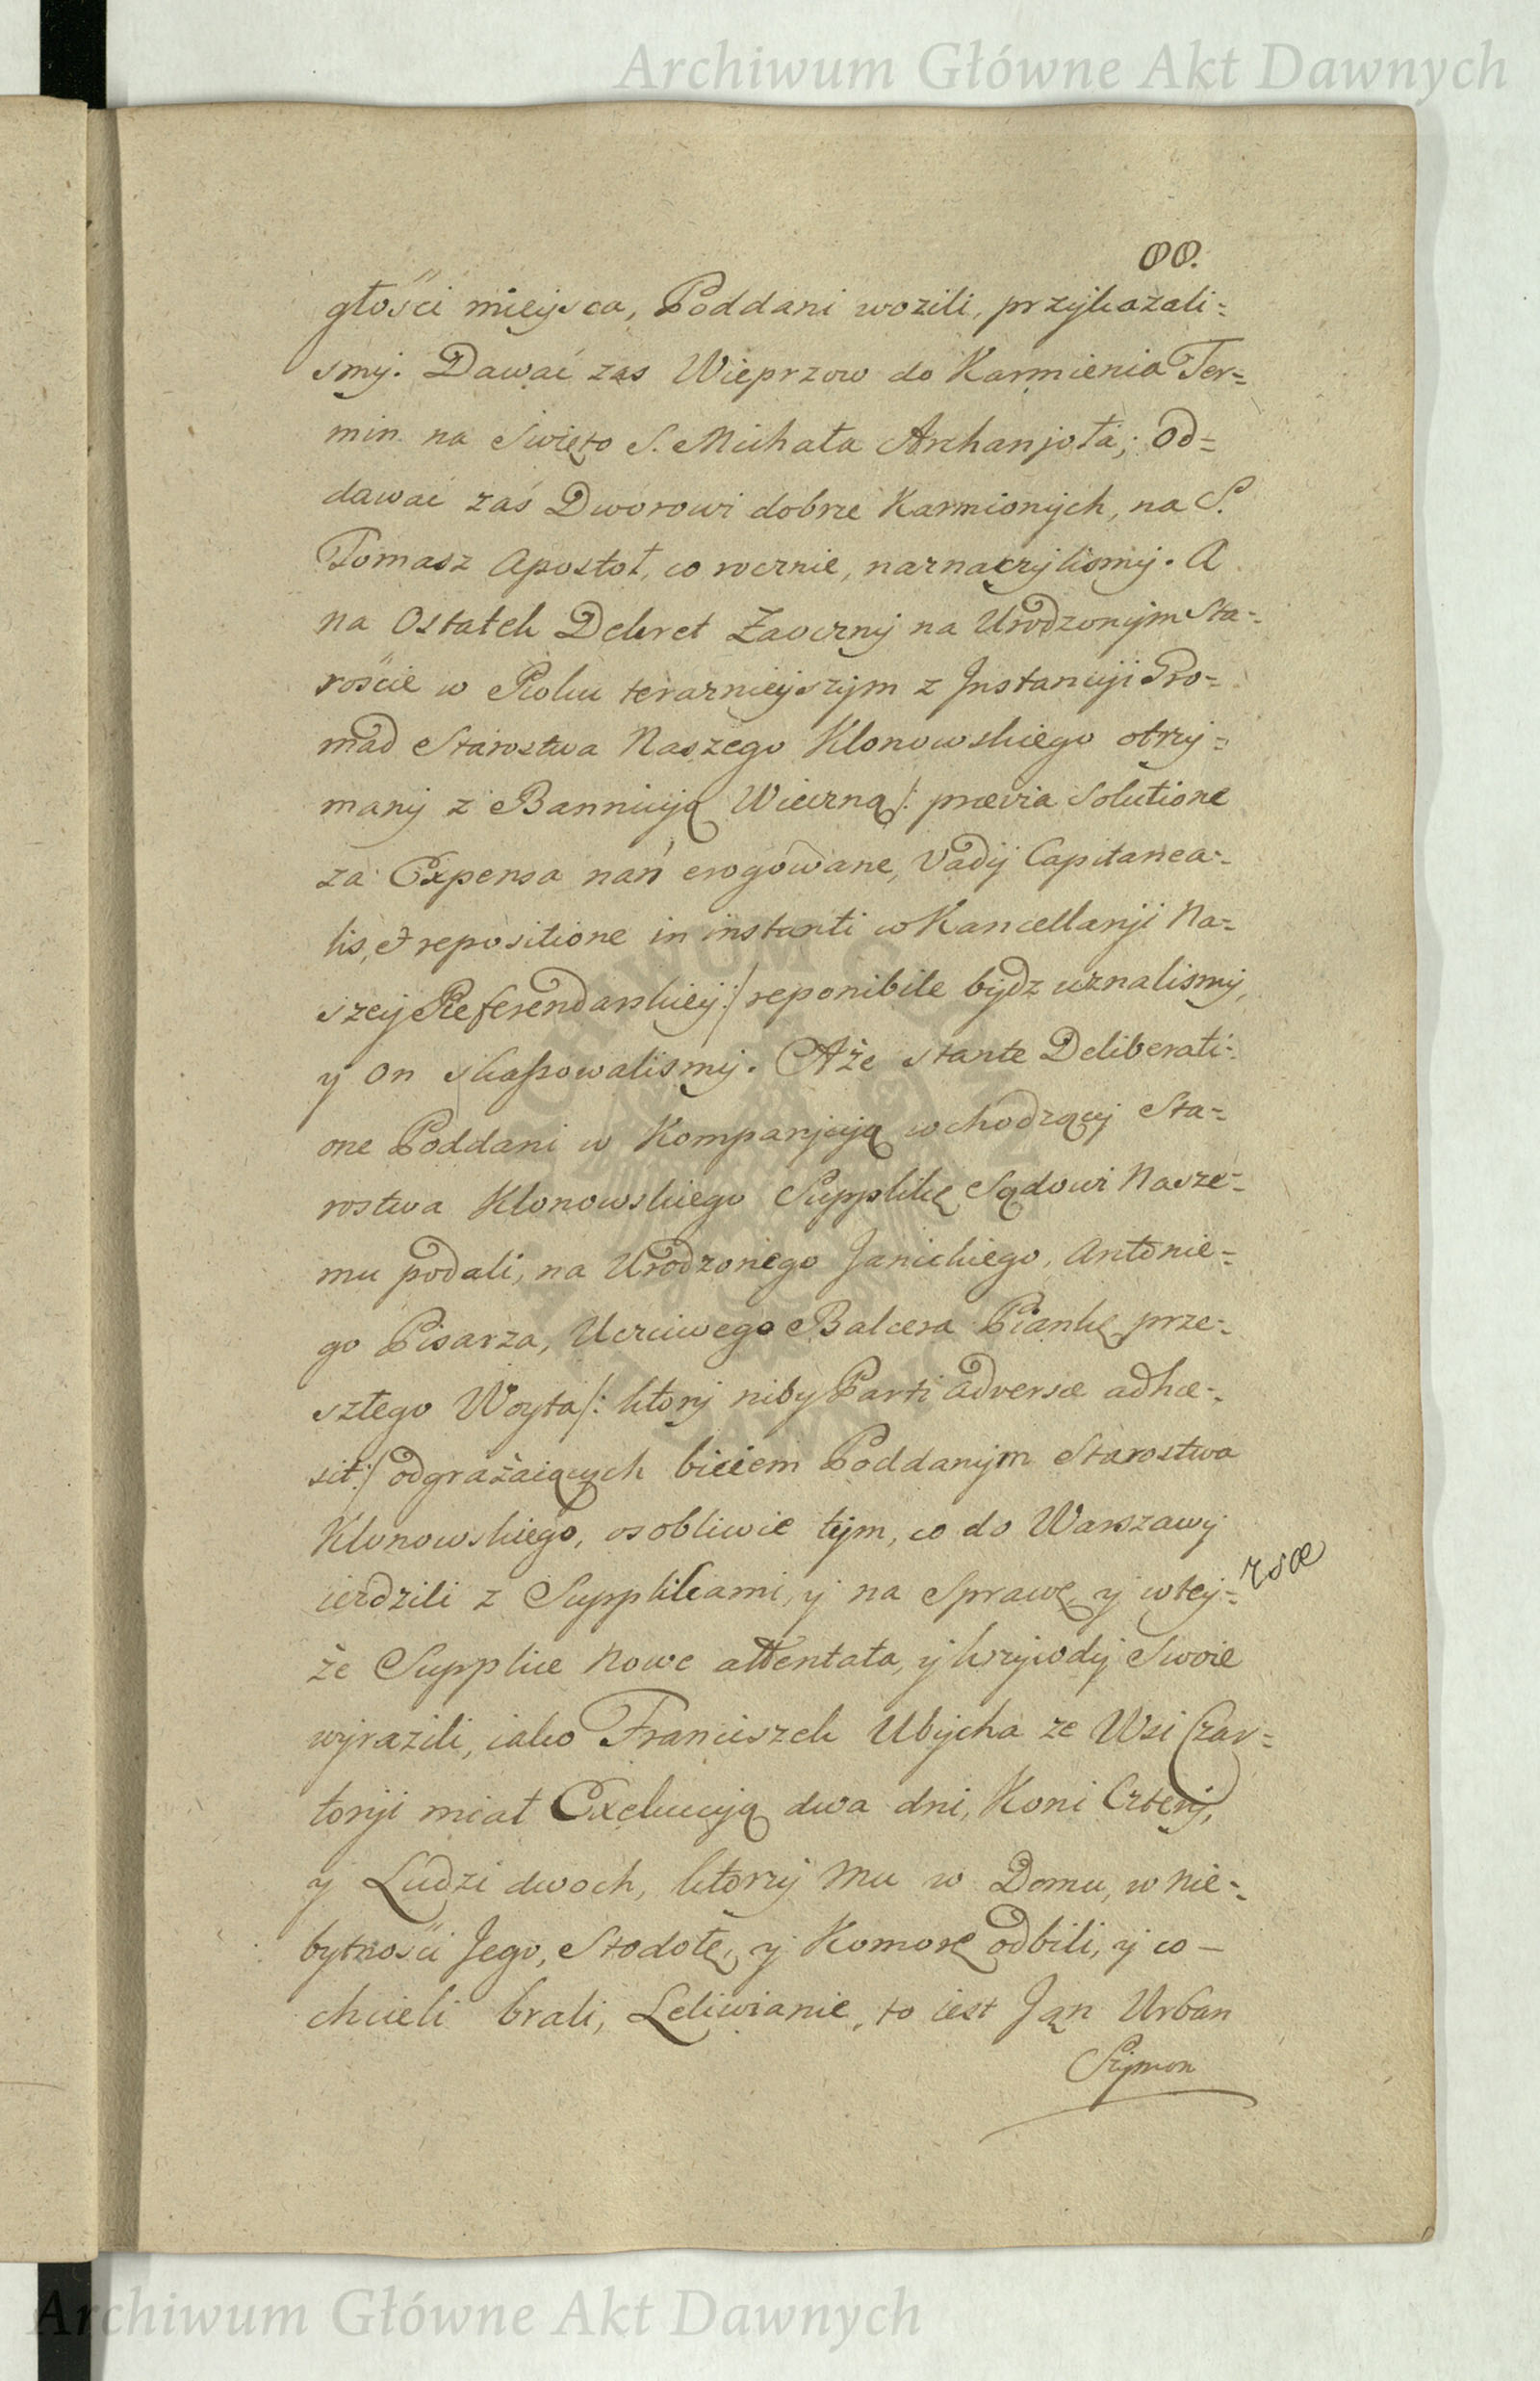 Archiwum Główne Akt Dawnych
00.
głości mieysca, Poddani wozili, przykazali=
smy. Dawać zas Wieprzow do Karmienia Ter=
min na Swięto S. Michała Archanjoła; od=
dawać zaś Dworowi dobrze Karmionych, na S.
Tomasz Apostoł, co rocznie, naznaczylismy. A
na Ostatek Dekret Zaoczny na Urodzonym Sta=
rościie w Roku terazniejszym z Instancyi Gro=
mad Starostwa Naszego Klonowskiego otrzy=
many z Bannicyją Wieczną /: prævia Solutione
za Expensa nań erogowane, Vadij Capitanea=
lis, et repositione in instanti w Kancellaryi Na=
szey Referendarskiey :/ reponibile bydz uznalismy,
y on skassowalismy. A że stante Deliberati=
one Poddani w Komparycyją wchodzący Sta=
rostwa Klonowskiego Supplikę Sądowi Nasze=
mu podali, na Urodzonego Janickiego, Antonie=
go Pisarza, Uczciwego Balcera Piankę prze=
szłego Woyta /: ktory niby Parti adversæ adhæ=
sit :/ odgrażaiących biciem Poddanym Starostwa
Klonowskiego, osobliwie tym, co do Warszawy
ieździli z Supplikami, y na Sprawę, y w tey=
że Supplice nowe attentata, y krzywdy Swoie
wyrazili, iako Franciszek Ubycha ze Wsi Czar=
toryi miał Exekucyją dwa dni, Koni Cztery,
y Ludzi dwoch, ktorzy mu w Domu, w nie=
bytności Jego, Stodołę, y Komorę odbili, y co
chcieli brali, Leliwianie, to iest Jan Urban
Szymon
Archiwum Główne Akt Dawnych